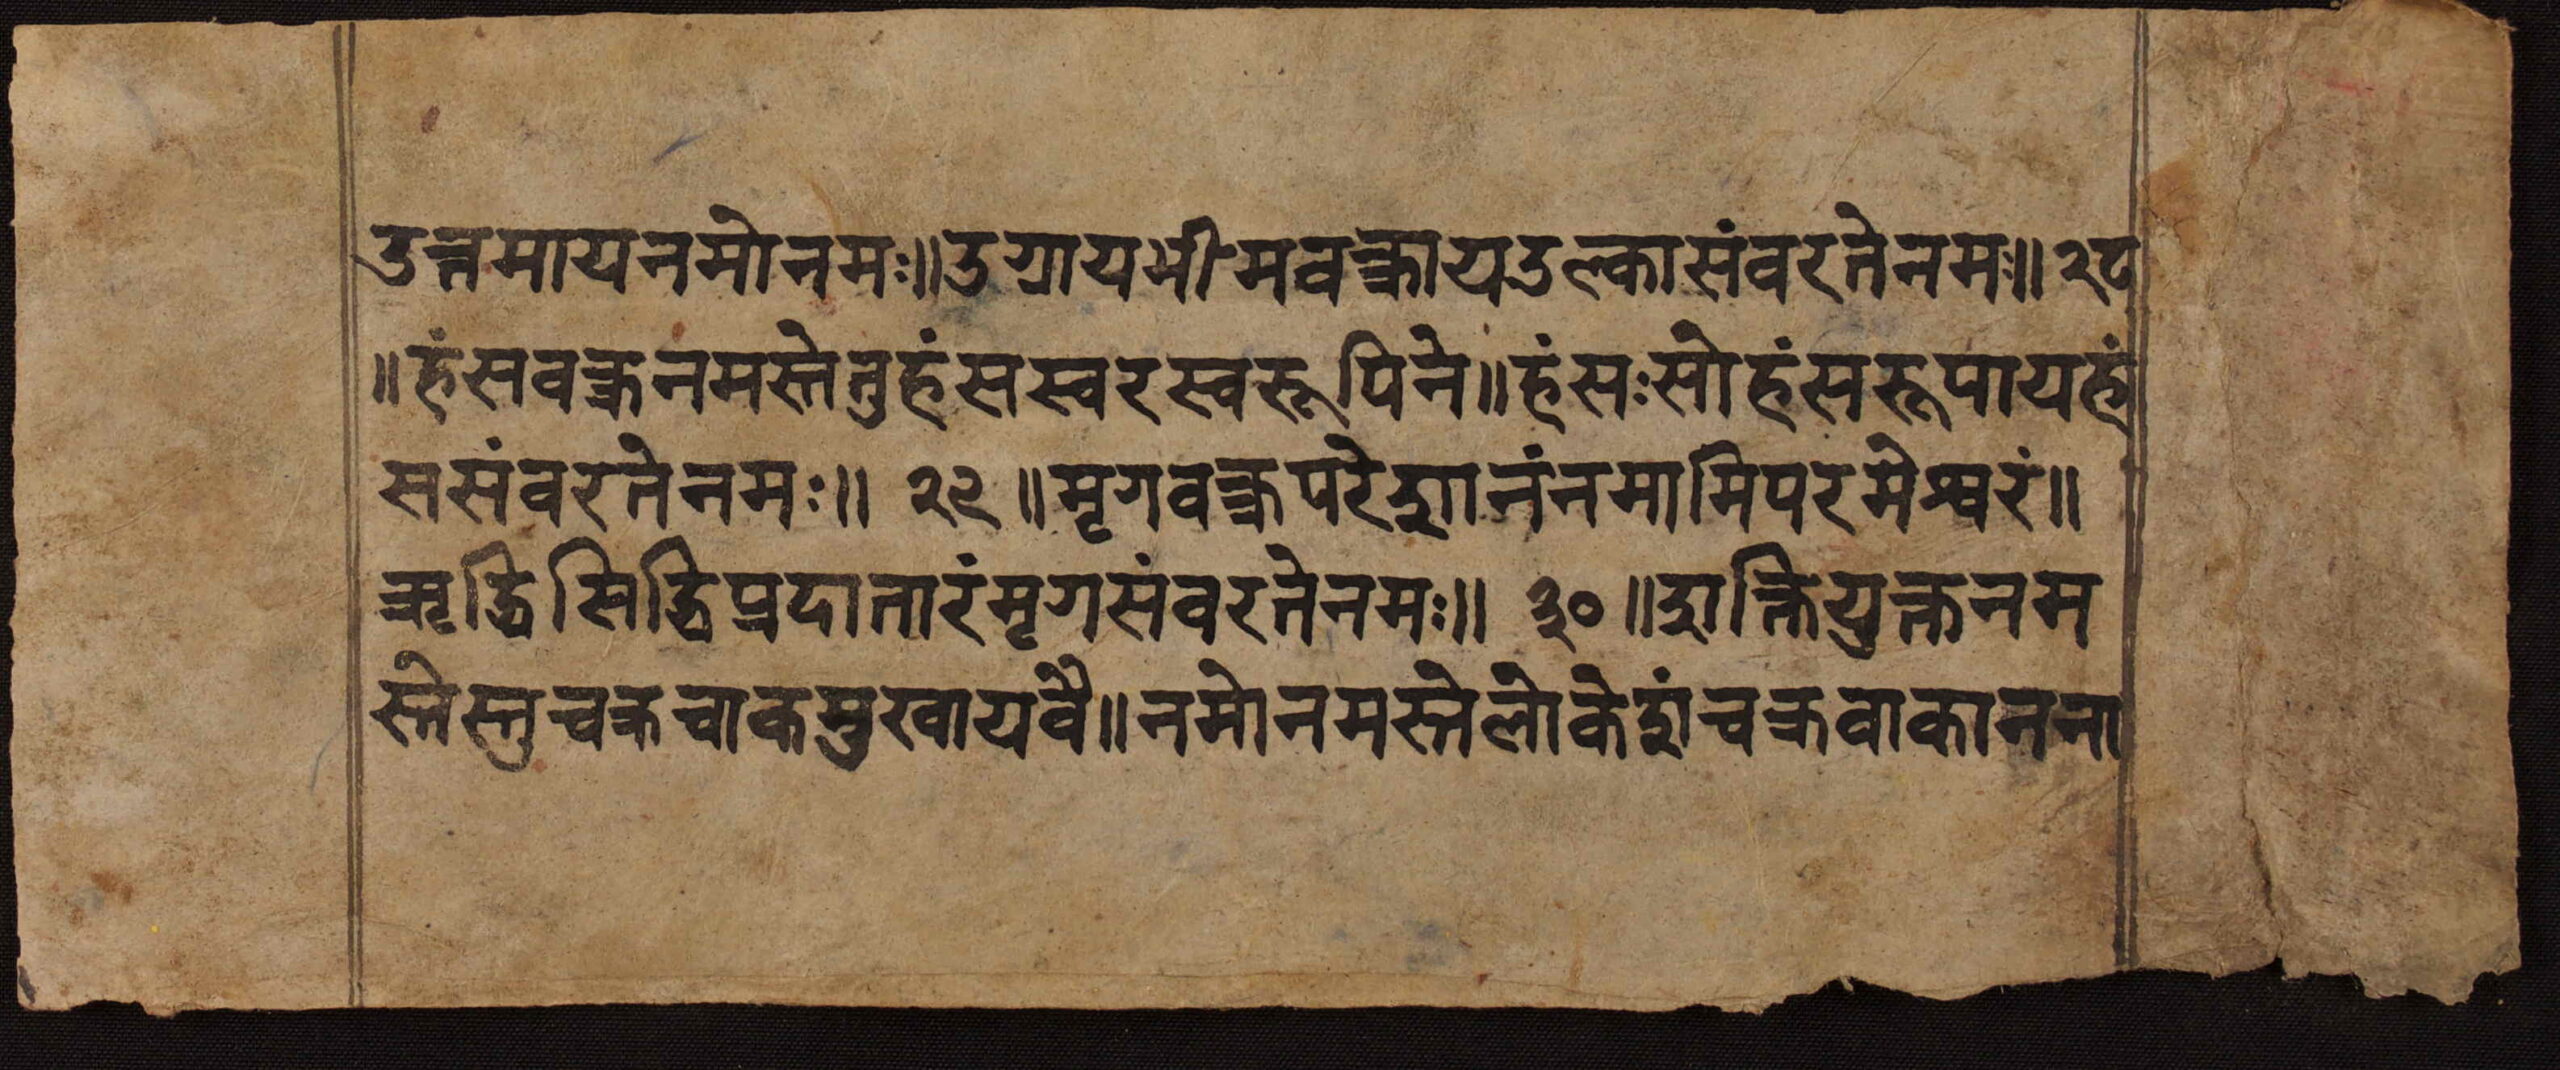 उत्तमायनमोनमः॥उग्रायभीमवक्त्रायउल्कासंवरतेनमः॥२८
॥हंसवक्त्रनमस्तेतुहंसस्वरस्वरूपिने॥हंसःसोहंसरूपायहं
ससंवरतेनमः॥ २९ ॥मृगवक्त्रपरेशानंनमामिपरमेश्वरं॥
ऋद्धिसिद्धिप्रदातारंमृगसंवरतेनमः॥ ३० ॥शक्तियुक्तनम
स्तेस्तुचक्रवाकमुखायवै॥नमोनमस्तेलोकेशंचक्रवाकानना